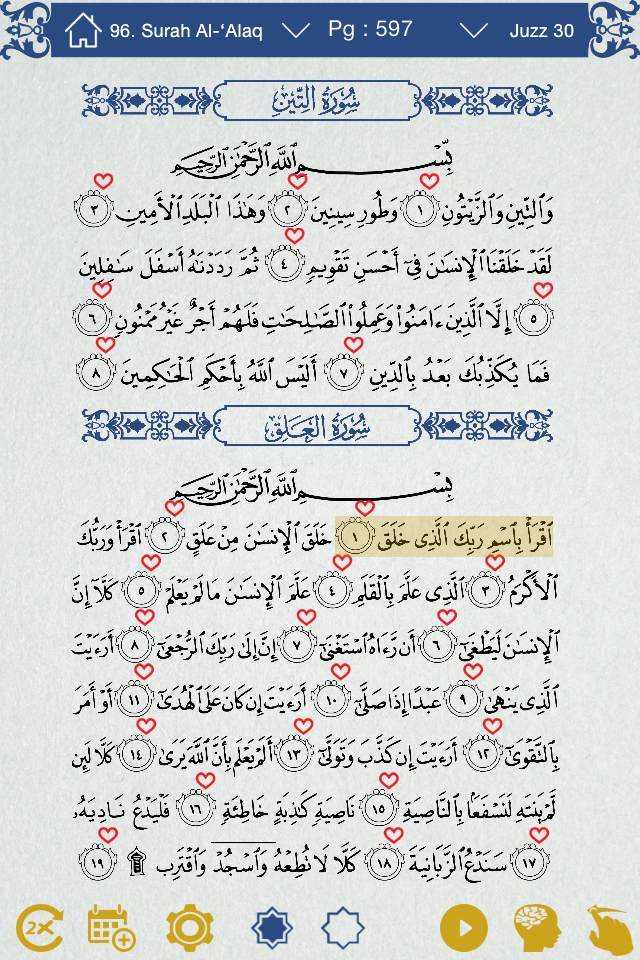 96. Surah Al-‘Alaq Pg : 597 Juzz 30
سُورَةُ التِّينِ
بِسْمِ ٱللَّهِ ٱلرَّحْمَٰنِ ٱلرَّحِيمِ
وَٱلتِّينِ وَٱلزَّيْتُونِ ١ وَطُورِ سِينِينَ ٢ وَهَٰذَا ٱلْبَلَدِ ٱلْأَمِينِ ٣
لَقَدْ خَلَقْنَا ٱلْإِنسَٰنَ فِىٓ أَحْسَنِ تَقْوِيمٍ ٤ ثُمَّ رَدَدْنَٰهُ أَسْفَلَ سَٰفِلِينَ
٥ إِلَّا ٱلَّذِينَ ءَامَنُوا۟ وَعَمِلُوا۟ ٱلصَّٰلِحَٰتِ فَلَهُمْ أَجْرٌ غَيْرُ مَمْنُونٍ ٦
فَمَا يُكَذِّبُكَ بَعْدُ بِٱلدِّينِ ٧ أَلَيْسَ ٱللَّهُ بِأَحْكَمِ ٱلْحَٰكِمِينَ ٨
سُورَةُ العَلَقِ
بِسْمِ ٱللَّهِ ٱلرَّحْمَٰنِ ٱلرَّحِيمِ
ٱقْرَأْ بِٱسْمِ رَبِّكَ ٱلَّذِى خَلَقَ ١ خَلَقَ ٱلْإِنسَٰنَ مِنْ عَلَقٍ ٢ ٱقْرَأْ وَرَبُّكَ
ٱلْأَكْرَمُ ٣ ٱلَّذِى عَلَّمَ بِٱلْقَلَمِ ٤ عَلَّمَ ٱلْإِنسَٰنَ مَا لَمْ يَعْلَمْ ٥ كَلَّآ إِنَّ
ٱلْإِنسَٰنَ لَيَطْغَىٰٓ ٦ أَن رَّءَاهُ ٱسْتَغْنَىٰٓ ٧ إِنَّ إِلَىٰ رَبِّكَ ٱلرُّجْعَىٰٓ ٨ أَرَءَيْتَ
ٱلَّذِى يَنْهَىٰ ٩ عَبْدًا إِذَا صَلَّىٰٓ ١٠ أَرَءَيْتَ إِن كَانَ عَلَى ٱلْهُدَىٰٓ ١١ أَوْ أَمَرَ
بِٱلتَّقْوَىٰٓ ١٢ أَرَءَيْتَ إِن كَذَّبَ وَتَوَلَّىٰٓ ١٣ أَلَمْ يَعْلَم بِأَنَّ ٱللَّهَ يَرَىٰ ١٤ كَلَّا لَئِن
لَّمْ يَنتَهِ لَنَسْفَعًۢا بِٱلنَّاصِيَةِ ١٥ نَاصِيَةٍ كَٰذِبَةٍ خَاطِئَةٍ ١٦ فَلْيَدْعُ نَادِيَهُۥ
١٧ سَنَدْعُ ٱلزَّبَانِيَةَ ١٨ كَلَّا لَا تُطِعْهُ وَٱسْجُدْ وَٱقْتَرِب ۩ ١٩
2X